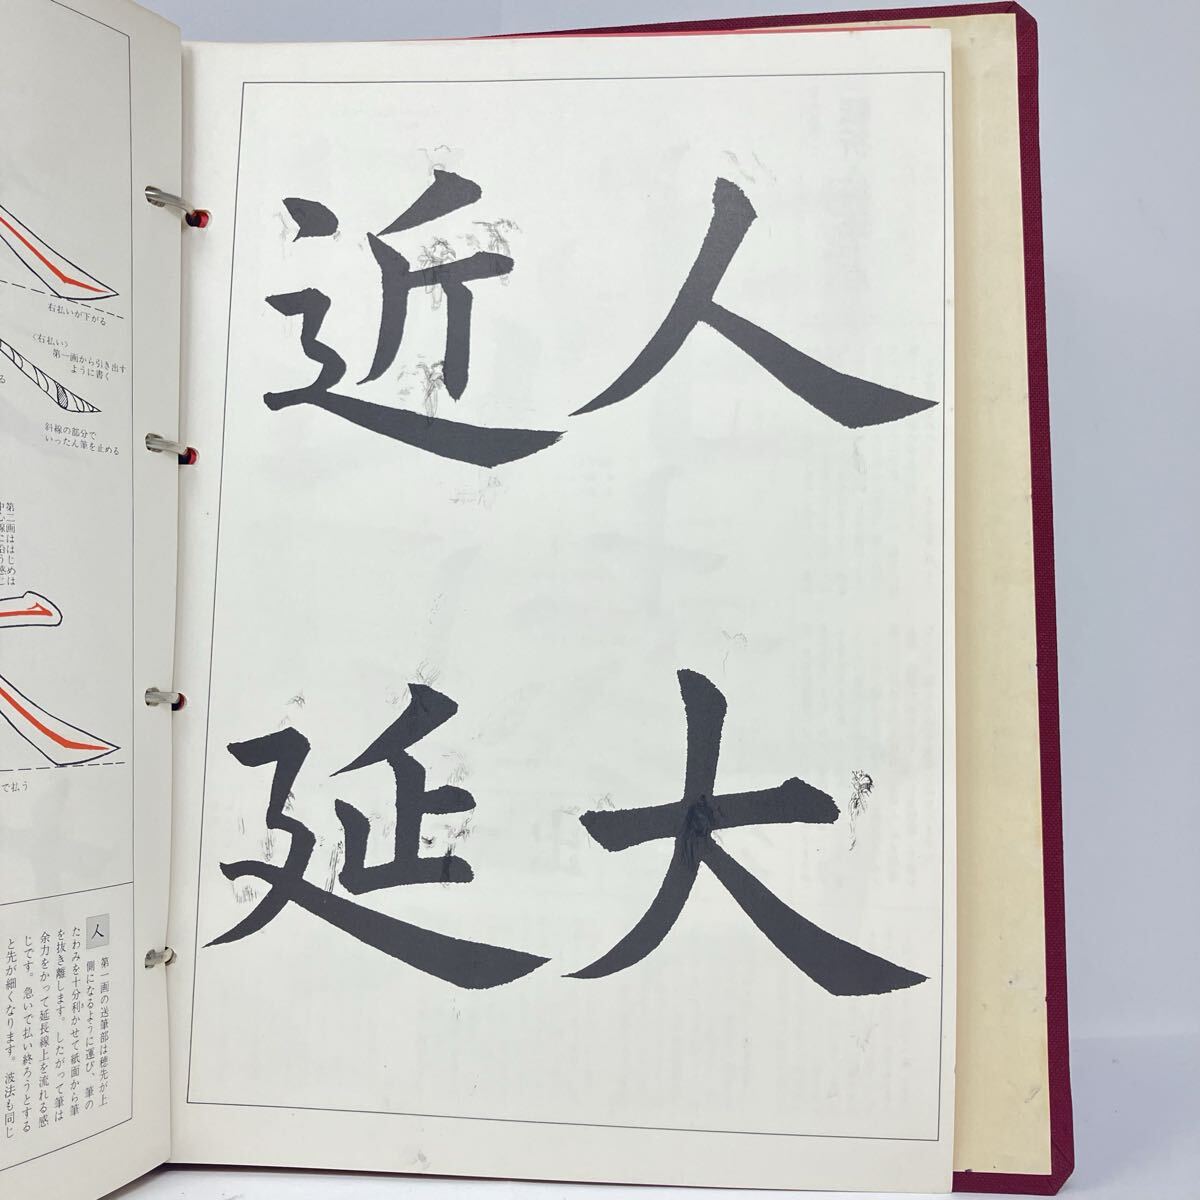 人
大
近
延
右払いが下がる
〈右払い〉
第一画から引き出す
ように書く
る
斜線の部分で
いったん筆を止める
第二画ははじめは
で払う
人
第一画の送筆部は穂先が上
側になるように運び、筆の
たわみを十分利かせて紙面から筆
を抜き離します。したがって筆は
余力をかって延長線上を流れる感
じです。急いで払い終ろうとする
と先が細くなります。波法も同じ